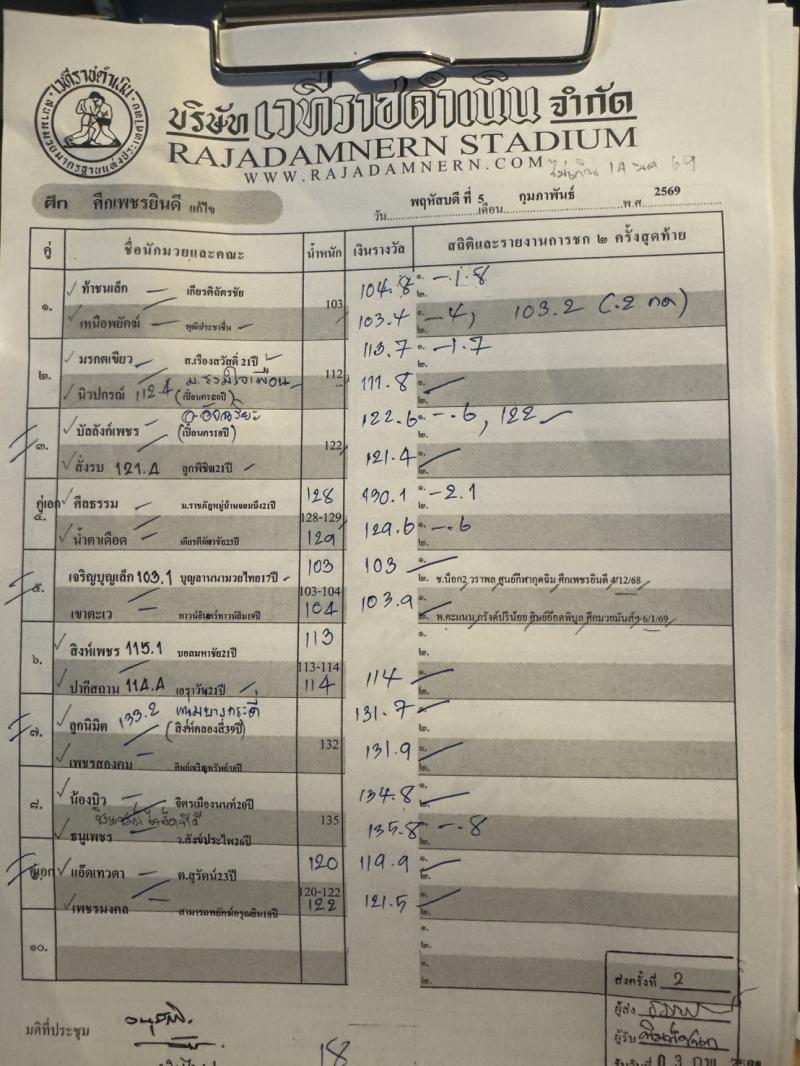 เวทีราชดำเนิน
บริษัท เวทีราชดำเนิน จำกัด
RAJADAMNERN STADIUM
WWW.RAJADAMNERN.COM
ศึก ศึกเพชรยินดี แก้ไข
วัน พฤหัสบดี ที่ 5 เดือน กุมภาพันธ์ พ.ศ. 2569
คู่ ชื่อนักมวยและคณะ น้ำหนัก เงินรางวัล สถิติและรายงานการชก ๒ ครั้งสุดท้าย
๑. ท้าชนเล็ก เกียรติฉัตรชัย 103 104.8 ๑. -1.8
๒.
เหนือพยัคฆ์ วุฒิประชาชื่น 103.4 ๑. -4, 103.2 (.2 กด)
๒.
๒. มรกตเขียว ส.เรืองสวัสดิ์ 21ปี 112 113.7 ๑. -1.7
๒.
นิวปกรณ์ 112.4 ม.รวมใจเพื่อน (เปี๊ยนคร20ปี) 111.8 ๑.
๒.
๓. บัลลังก์เพชร (เปี๊ยนคร18ปี) 122 122.6 ๑. -.6, 122
๒.
สั่งรบ 121.4 ลูกพิชิต21ปี 121.4 ๑.
๒.
คู่เอก ๔. ศีลธรรม ม.ราชภัฏหมู่บ้านจอมบึง21ปี 128 130.1 ๑. -2.1
128-129 ๒.
น้ำตาเดือด เกียรติฉัตรชัย23ปี 129 129.6 ๑. -.6
๒.
๕. เจริญบุญเล็ก 103.1 บุญลานนามวยไทย17ปี 103 103 ๑.
๒. ช.น็อก2 วราพล ศูนย์กีฬากุดฉิม ศึกเพชรยินดี 4/12/68
103-104
เขาตะเว ทาวน์อินทร์ทาวน์อิน19ปี 104 103.9 ๑.
๒. พ.คะแนน กรังด์ปรีน้อย ศิษย์อ๊อดพิบูล ศึกมวยมันส์ฯ 6/1/69
๖. สิงห์เพชร 115.1 บอลมหาชัย21ปี 113 ๑.
113-114 ๒.
ปากีสถาน 114.4 เอราวัณ21ปี 114 114 ๑.
๒.
๗. ลูกนิมิต 133.2 (สิงห์คลองสี่39ปี) 132 131.7 ๑.
๒.
เพชรสองคม ศิษย์เจริญทรัพย์38ปี 131.9 ๑.
๒.
๘. น้องบิว จิตรเมืองนนท์20ปี 135 134.8 ๑.
๒.
ธนูเพชร ว.สังข์ประไพ26ปี 135.8 ๑. -.8
๒.
คู่เอก แอ๊ดเทวดา ต.สุรัตน์23ปี 120 119.9 ๑.
120-122 ๒.
เพชรมงคล สามารถพยัคฆ์อรุณยิม18ปี 122 121.5 ๑.
๒.
๑๐. ๑.
๒.
๑.
๒.
มติที่ประชุม
18
ส่งครั้งที่ 2
ผู้ส่ง
ผู้รับ